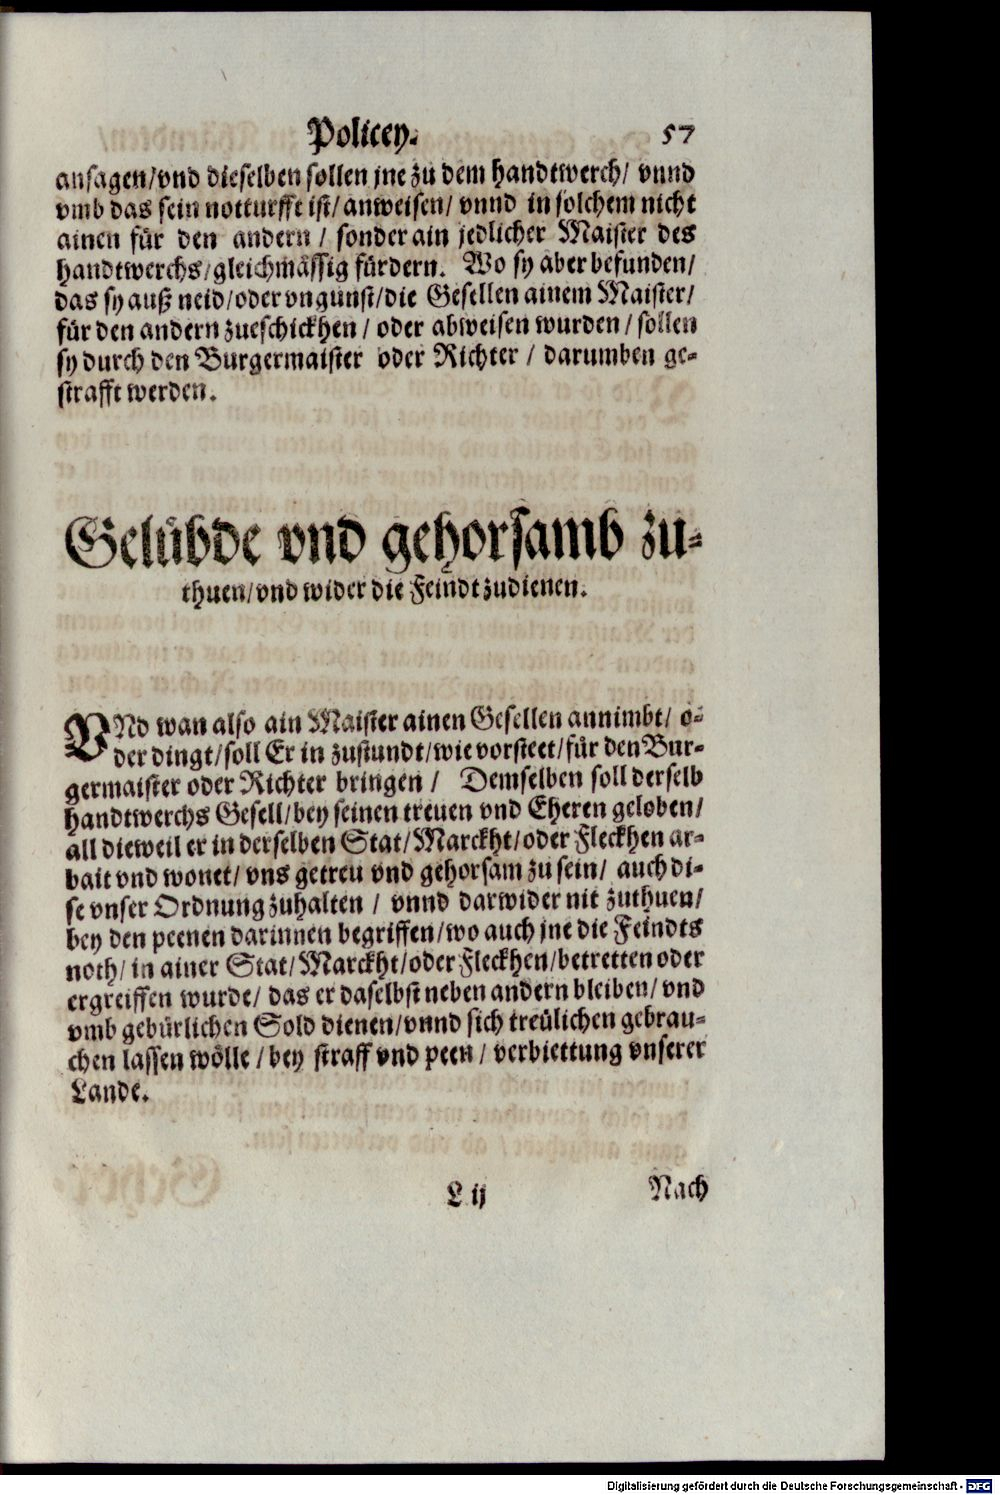 Policey. 57
ansagen/vnd dieselben sollen jne zu dem handtwerch/ vnnd
vmb das sein notturfft ist/anweisen/ vnnd in solchem nicht
ainen für den andern / sonder ain jedlicher Maister des
handtwerchs/gleichmässig fürdern. Wo sy aber befunden/
das sy auß neid/oder vngunst/die Gesellen ainem Maister/
für den andern zueschickhen / oder abweisen wurden / sollen
sy durch den Burgermaister oder Richter / darumben ge-
strafft werden.
Gelübde vnd gehorsamb zu-
thuen/vnd wider die Feindt zudienen.
VNd wan also ain Maister ainen Gesellen annimbt/ o-
der dingt/soll Er in zustundt/wie vorsteet/für den Bur-
germaister oder Richter bringen / Demselben soll derselb
handtwerchs Gesell/bey seinen treuen vnd Eheren geloben/
all dieweil er in derselben Stat/Marckht/oder Fleckhen ar-
bait vnd wonet/ vns getreu vnd gehorsam zu sein/ auch di-
se vnser Ordnung zuhalten / vnnd darwider nit zuthuen/
bey den peenen darinnen begriffen/wo auch jne die Feindts
noth/ in ainer Stat/Marckht/oder Fleckhen/betretten oder
ergreiffen wurde/ das er daselbst neben andern bleiben/ vnd
vmb gebürlichen Sold dienen/vnnd sich treülichen gebrau-
chen lassen wölle / bey straff vnd peen / verbiettung vnserer
Lande.
L ij Nach
Digitalisierung gefördert durch die Deutsche Forschungsgemeinschaft - DFG